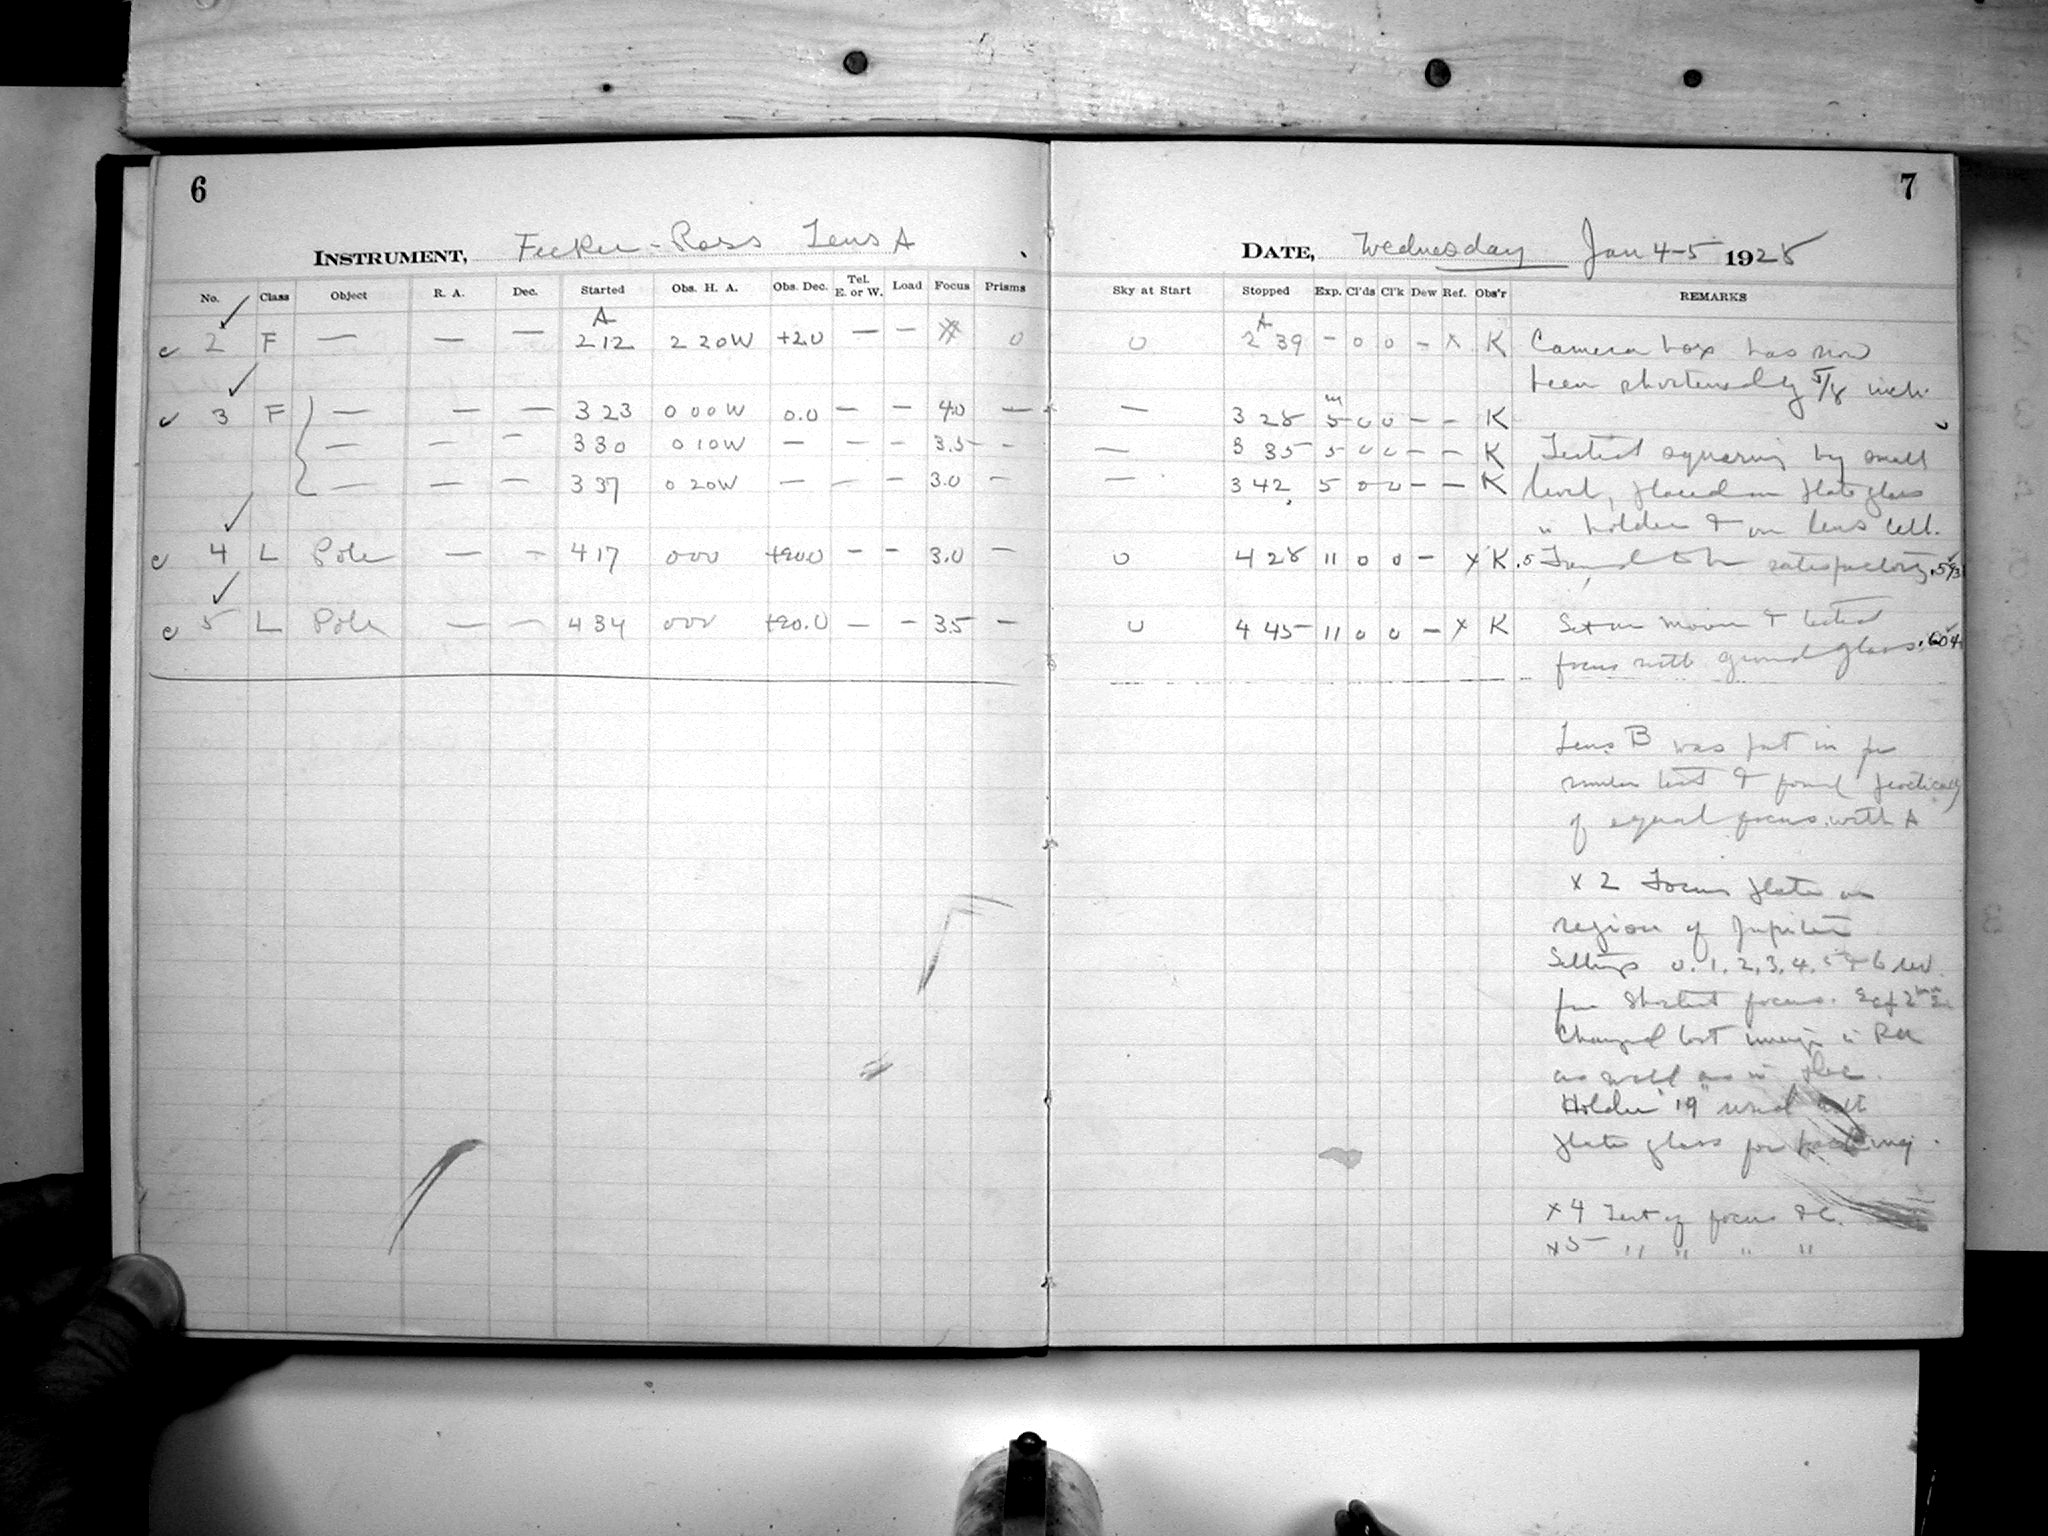 6
INSTRUMENT, Fecker-Ross Lens A
No. Class Object R. A. Dec. Started Obs. H. A. Obs. Dec. Tel. E. or W. Load Focus Prisms
2 F — — — A 2 12 2 20W +2.0 — — 0
3 F — — — 3 23 0 00W 0.0 — — 4.0 —
— — — 3 30 0 10W — — — 3.5 —
— — — 3 37 0 20W — — — 3.0 —
4 L Pole — — 4 17 0 00 +90.0 — — 3.0 —
5 L Pole — — 4 34 0 00 +90.0 — — 3.5 —
7
DATE, Wednesday Jan 4-5 1928
Sky at Start Stopped Exp. Cl'ds Cl'k Dew Ref. Obs'r REMARKS
0 2 A 39 — 0 0 — x K Camera box has now
been shortened by 5/8 inch.
— 3 28 5 m 0 0 — — K
— 3 35 5 0 0 — — K Tested squaring by small
— 3 42 5 0 0 — — K level, placed on plate glass
in holder & on lens cell.
0 4 28 11 0 0 — x K .5 Found to be satisfactory.
0 4 45 11 0 0 — x K Set on moon & tested
focus with ground glass.
Lens B was put in for
similar test & found practically
of equal focus with A
x 2 Focus plate on
region of Jupiter
Settings 0, 1, 2, 3, 4, 5 & 6 rev.
from shortest focus.
Changed last image in RA
as well as in dec.
Holder "19" used with
plate glass for backing.
x 4 Test of focus &c.
x 5 " " " "